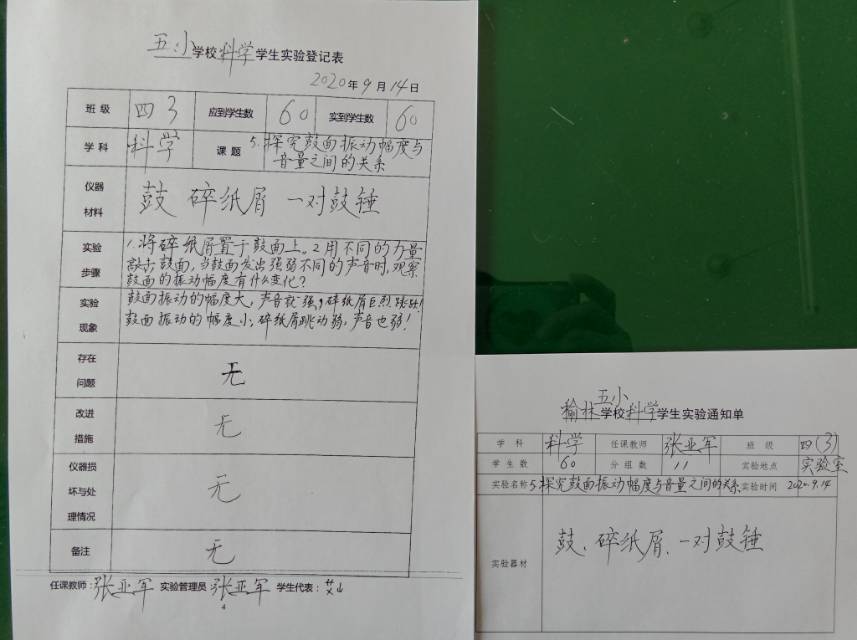 五小学校科学学生实验登记表
2020年9月14日
班级 四3 应到学生数 60 实到学生数 60
学科 科学 课题 5.探究鼓面振动幅度与
音量之间的关系
仪器
材料
鼓 碎纸屑 一对鼓锤
实验
步骤
1.将碎纸屑置于鼓面上。2用不同的力量
敲击鼓面,当鼓面发出强弱不同的声音时,观察
鼓面的振动幅度有什么变化?
实验
现象
鼓面振动的幅度大,声音就强,碎纸屑巨烈跳跃!
鼓面振动的幅度小,碎纸屑跳动弱,声音也弱!
存在
问题
无
改进
措施
无
仪器损
坏与处
理情况
无
备注 无
任课教师:张亚军 实验管理员 张亚军 学生代表:
4
榆林五小学校科学学生实验通知单
学科 科学 任课教师 张亚军 班级 四(3)
学生数 60 分组数 11 实验地点 实验室
实验名称 5.探究鼓面振动幅度与音量之间的关系 实验时间 2020.9.14
实验器材
鼓、碎纸屑、一对鼓锤